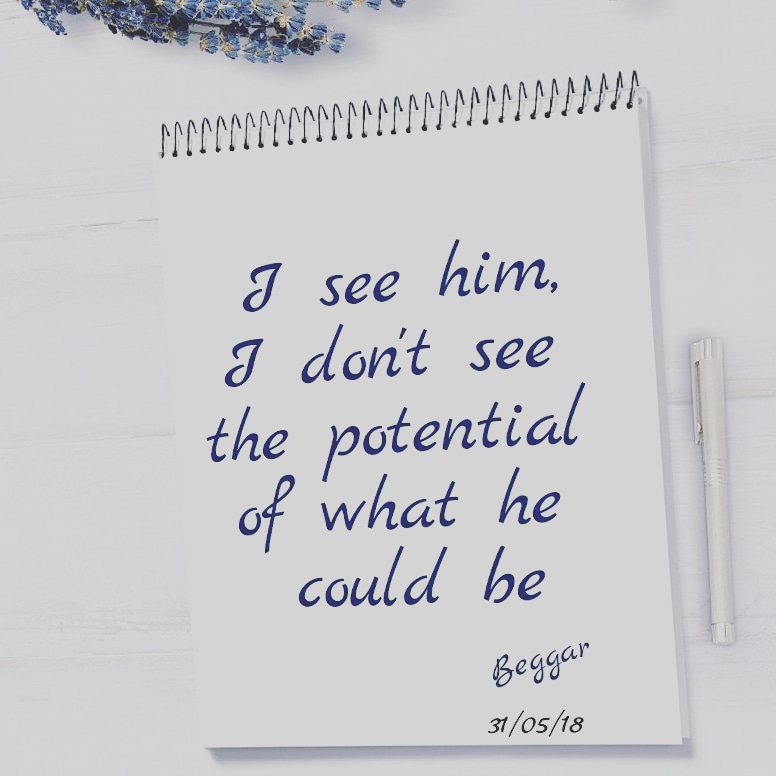 I see him,
I don't see
the potential
of what he
could be
Beggar
31/05/18